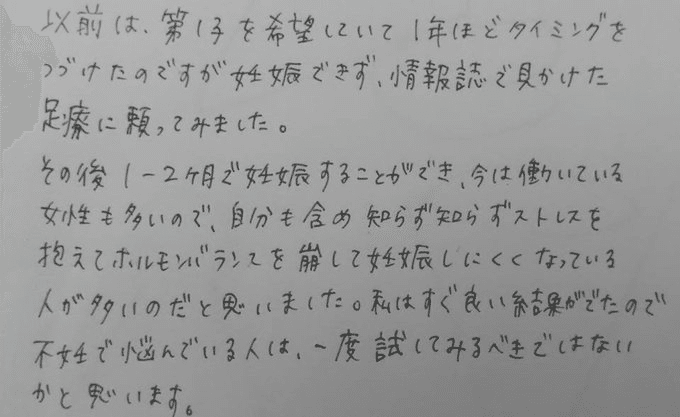 以前は、第1子を希望していて1年ほどタイミングを
つづけたのですが妊娠できず、情報誌で見かけた
足療に頼ってみました。
その後1-2ヶ月で妊娠することができ、今は働いている
女性も多いので、自分も含め知らず知らずストレスを
抱えてホルモンバランスを崩して妊娠しにくくなっている
人が多いのだと思いました。私はすぐ良い結果がでたので
不妊で悩んでいる人は、一度試してみるべきではない
かと思います。